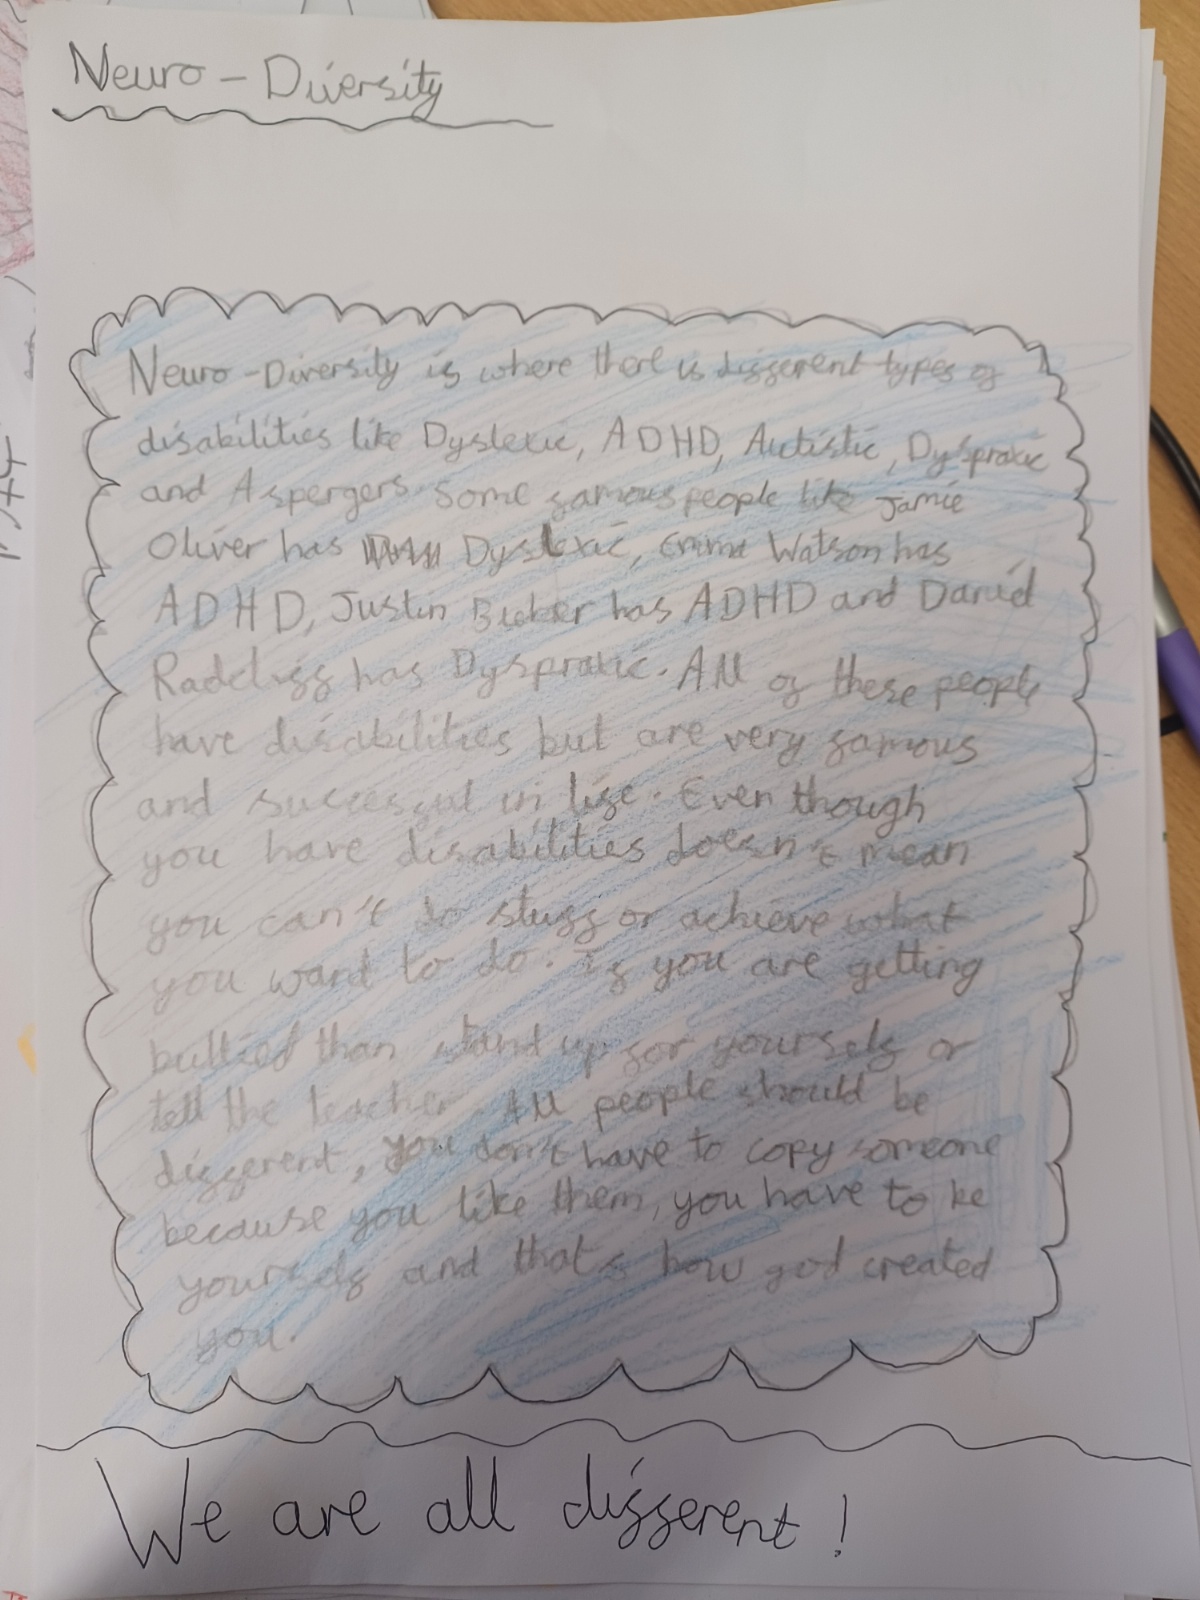 Neuro - Diversity
Neuro - Diversity is where there is different types of
disabilities like Dyslexic, ADHD, Autistic, Dyspraxic
and Aspergers. Some famous people like Jamie
Oliver has Dyslexic, Emma Watson has
ADHD, Justin Bieber has ADHD and Daniel
Radcliff has Dyspraxic. All of these people
have disabilities but are very famous
and successful in life. Even though
you have disabilities doesn't mean
you can't do stuff or achieve what
you want to do. If you are getting
bullied than stand up for yourself or
tell the teacher. All people should be
different, you don't have to copy someone
because you like them, you have to be
yourself and that's how god created
you.
We are all different!